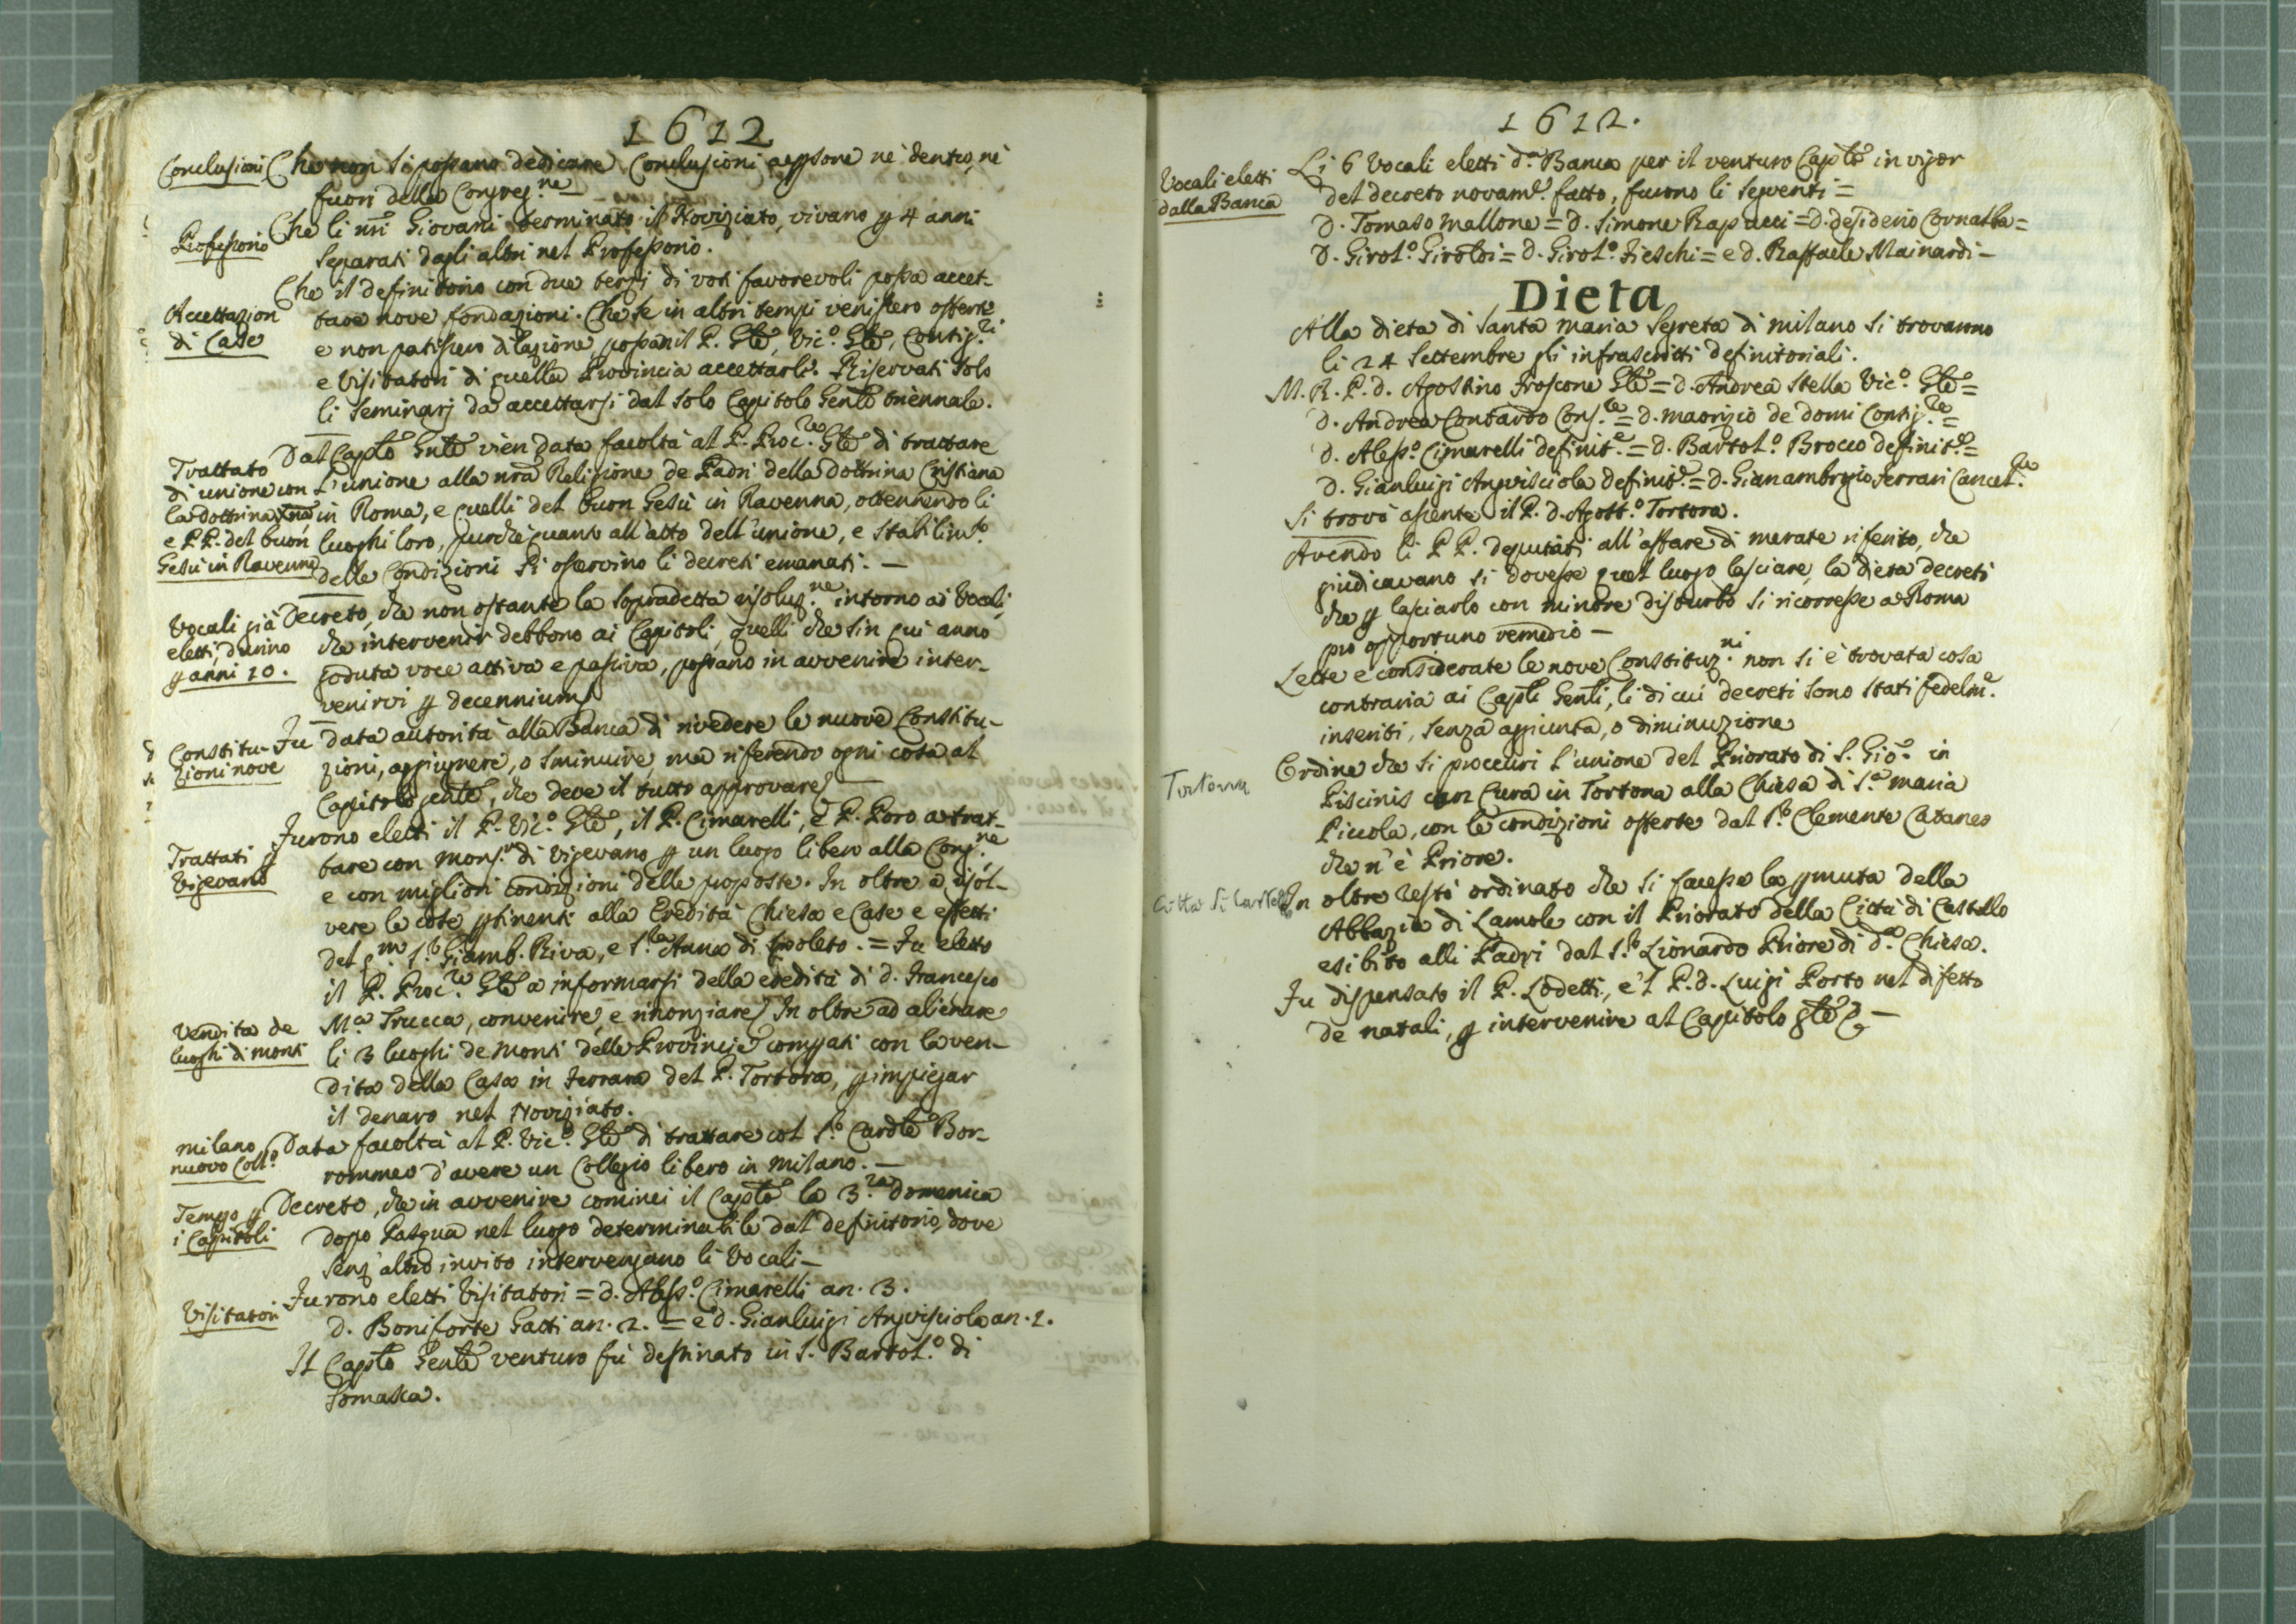 1612
Conclusioni
Che non si possano dedicare Conclusioni a ꝑsone nè dentro, nè
fuori della Congreg.ne
Professorio
Che li nri Giovani terminato il Noviziato, vivano ꝑ 4 anni
separati dagli altri nel Professorio.
Accettazion
di Case
Che il definitorio con due terzi di voti favorevoli possa accet-
tare nove fondazioni. Che se in altri tempi venissero offerte
e non patissero dilazione, possan il P. Gñle, Vic.o Gñle, Consig.ri
e Visitatori di quella Provincia accettarle. Riservati solo
li Seminarj da accettarsi dal solo Capitolo Genle triennale.
Trattato
di unione con
la dottrina Xna
e P.P. del buon
Gesù in Ravenna
Dal Caplo Gnle vien data facoltà al P. Proc.re Gñle di trattare
l'unione alla nrã Religione de Padri della Dottrina Cristiana
in Roma, e quelli del buon Gesù in Ravenna, ottenendo li
luoghi loro, purchè quanto all'atto dell'unione, e stabilimto
delle Condizioni si osservino li decreti emanati. —
Vocali già
eletti, durino
ꝑ anni 10.
Decreto, che non ostante la sopradetta risoluz.ne intorno ai Vocali,
che intervenir debbono ai Capitoli, quelli che sin qui anno
goduta voce attiva e passiva, possano in avvenire inter-
venirvi ꝑ decennium
Constitu-
zioni nove
Fu data autorità alla Banca di rivedere le nuove Constitu-
zioni, aggiugnere, o sminuire ma riferendo ogni cosa al
Capitolo genle, che deve il tutto approvare
Trattati ꝑ
Vigevano
Furono eletti il P. Vic.o Gñle, il P. Cimarelli, e P. Poro a trat-
tare con Mons.r di Vigevano ꝑ un luogo libero alla Cong.ne
e con migliori condizioni delle proposte. In oltre a risol-
vere le cose ꝑtinenti alla Eredità Chiesa e Case e effetti
del q.m S.r Giamb. Riva, e S.ra Anna di Spoleto. = Fu eletto
il P. Proc.re Gñle a informarsi della eredità di d. Francesco
M.a Trucca, convenire, e rinonziare. In oltre ad alienare
Vendita de
luoghi di monti
li 3 luoghi de Monti delle Provincie comprati con la ven-
dita della Casa in Ferrara del P. Tortora, ꝑ impiegar
il denaro nel Noviziato.
Milano
nuovo Coll.o
Data facoltà al P. Vic.o Gñle di trattare col S.r Cardle Bor-
rommeo d'avere un Collegio libero in Milano. —
Tempo ꝑ
i Capitoli
Decreto, che in avvenire cominci il Caplo la 3.za Domenica
dopo Pasqua nel luogo determinabile dal definitorio, dove
senz'altro invito intervengano li Vocali —
Visitatori
Furono eletti Visitatori = D. Aless.o Cimarelli an. 3.
D. Boniforte Gatti an. 2. = e D. Gianluigi Angvisciola an. 1.
Il Caplo Genle venturo fù destinato in S. Bartol.o di
Somasca.
1612.
Vocali eletti
dalla Banca
Li 6 Vocali eletti d.a Banca per il venturo Caplo in vigor
del decreto novam.e fatto, furono li seguenti =
D. Tomaso Mallone = D. Simone Rapucci = D. Desiderio Cornalba =
D. Girol.o Giroldi = D. Girol.o Fieschi = e D. Raffaele Mainardi —
Dieta
Alla dieta di Santa Maria Segreta di Milano si trovarono
li 24 Settembre gli infrascritti definitoriali.
M. R. P. D. Agostino Froscone Gñle = D. Andrea Stella Vic.o Gñle =
D. Andrea Contardo Cons.re = D. Maorizio de Domi Consig.re =
D. Aless.o Cimarelli definit.e = D. Bartol.o Brocco definit.e =
D. Gianluigi Angvisciola definit.e = D. Gianambrogio Ferrari Cancel.re
Si trovò assente il P. D. Agost.o Tortora.
Avendo li P.P. deputati all'affare di Merate riferito, che
giudicavano si dovesse quel luogo lasciare, la dieta decretò
che ꝑ lasciarlo con minore disturbo si ricorresse a Roma
pro opportuno remedio —
Lette e considerate le nove Constituz.ni non si è trovata cosa
contraria ai Capli Genli, li di cui decreti sono stati fedelm.e
inseriti, senza aggiunta, o diminuzione
Tortona
Ordine che si proccuri l'unione del Priorato di S. Gio. in
Piscinis con Cura in Tortona alla Chiesa di S.a Maria
Piccola, con le condizioni offerte dal S.r Clemente Cataneo
che n'è Priore.
Citta di Castello
In oltre restò ordinato che si facesse la ꝑmuta della
Abbazia di Lamole con il Priorato della Città di Castello
esibito alli Padri dal S.r Lionardo Priore di d.a Chiesa.
Fu dispensato il P. Lodetti, e 'l P. D. Luigi Porto nel difetto
de natali, ꝑ intervenire al Capitolo gñle —